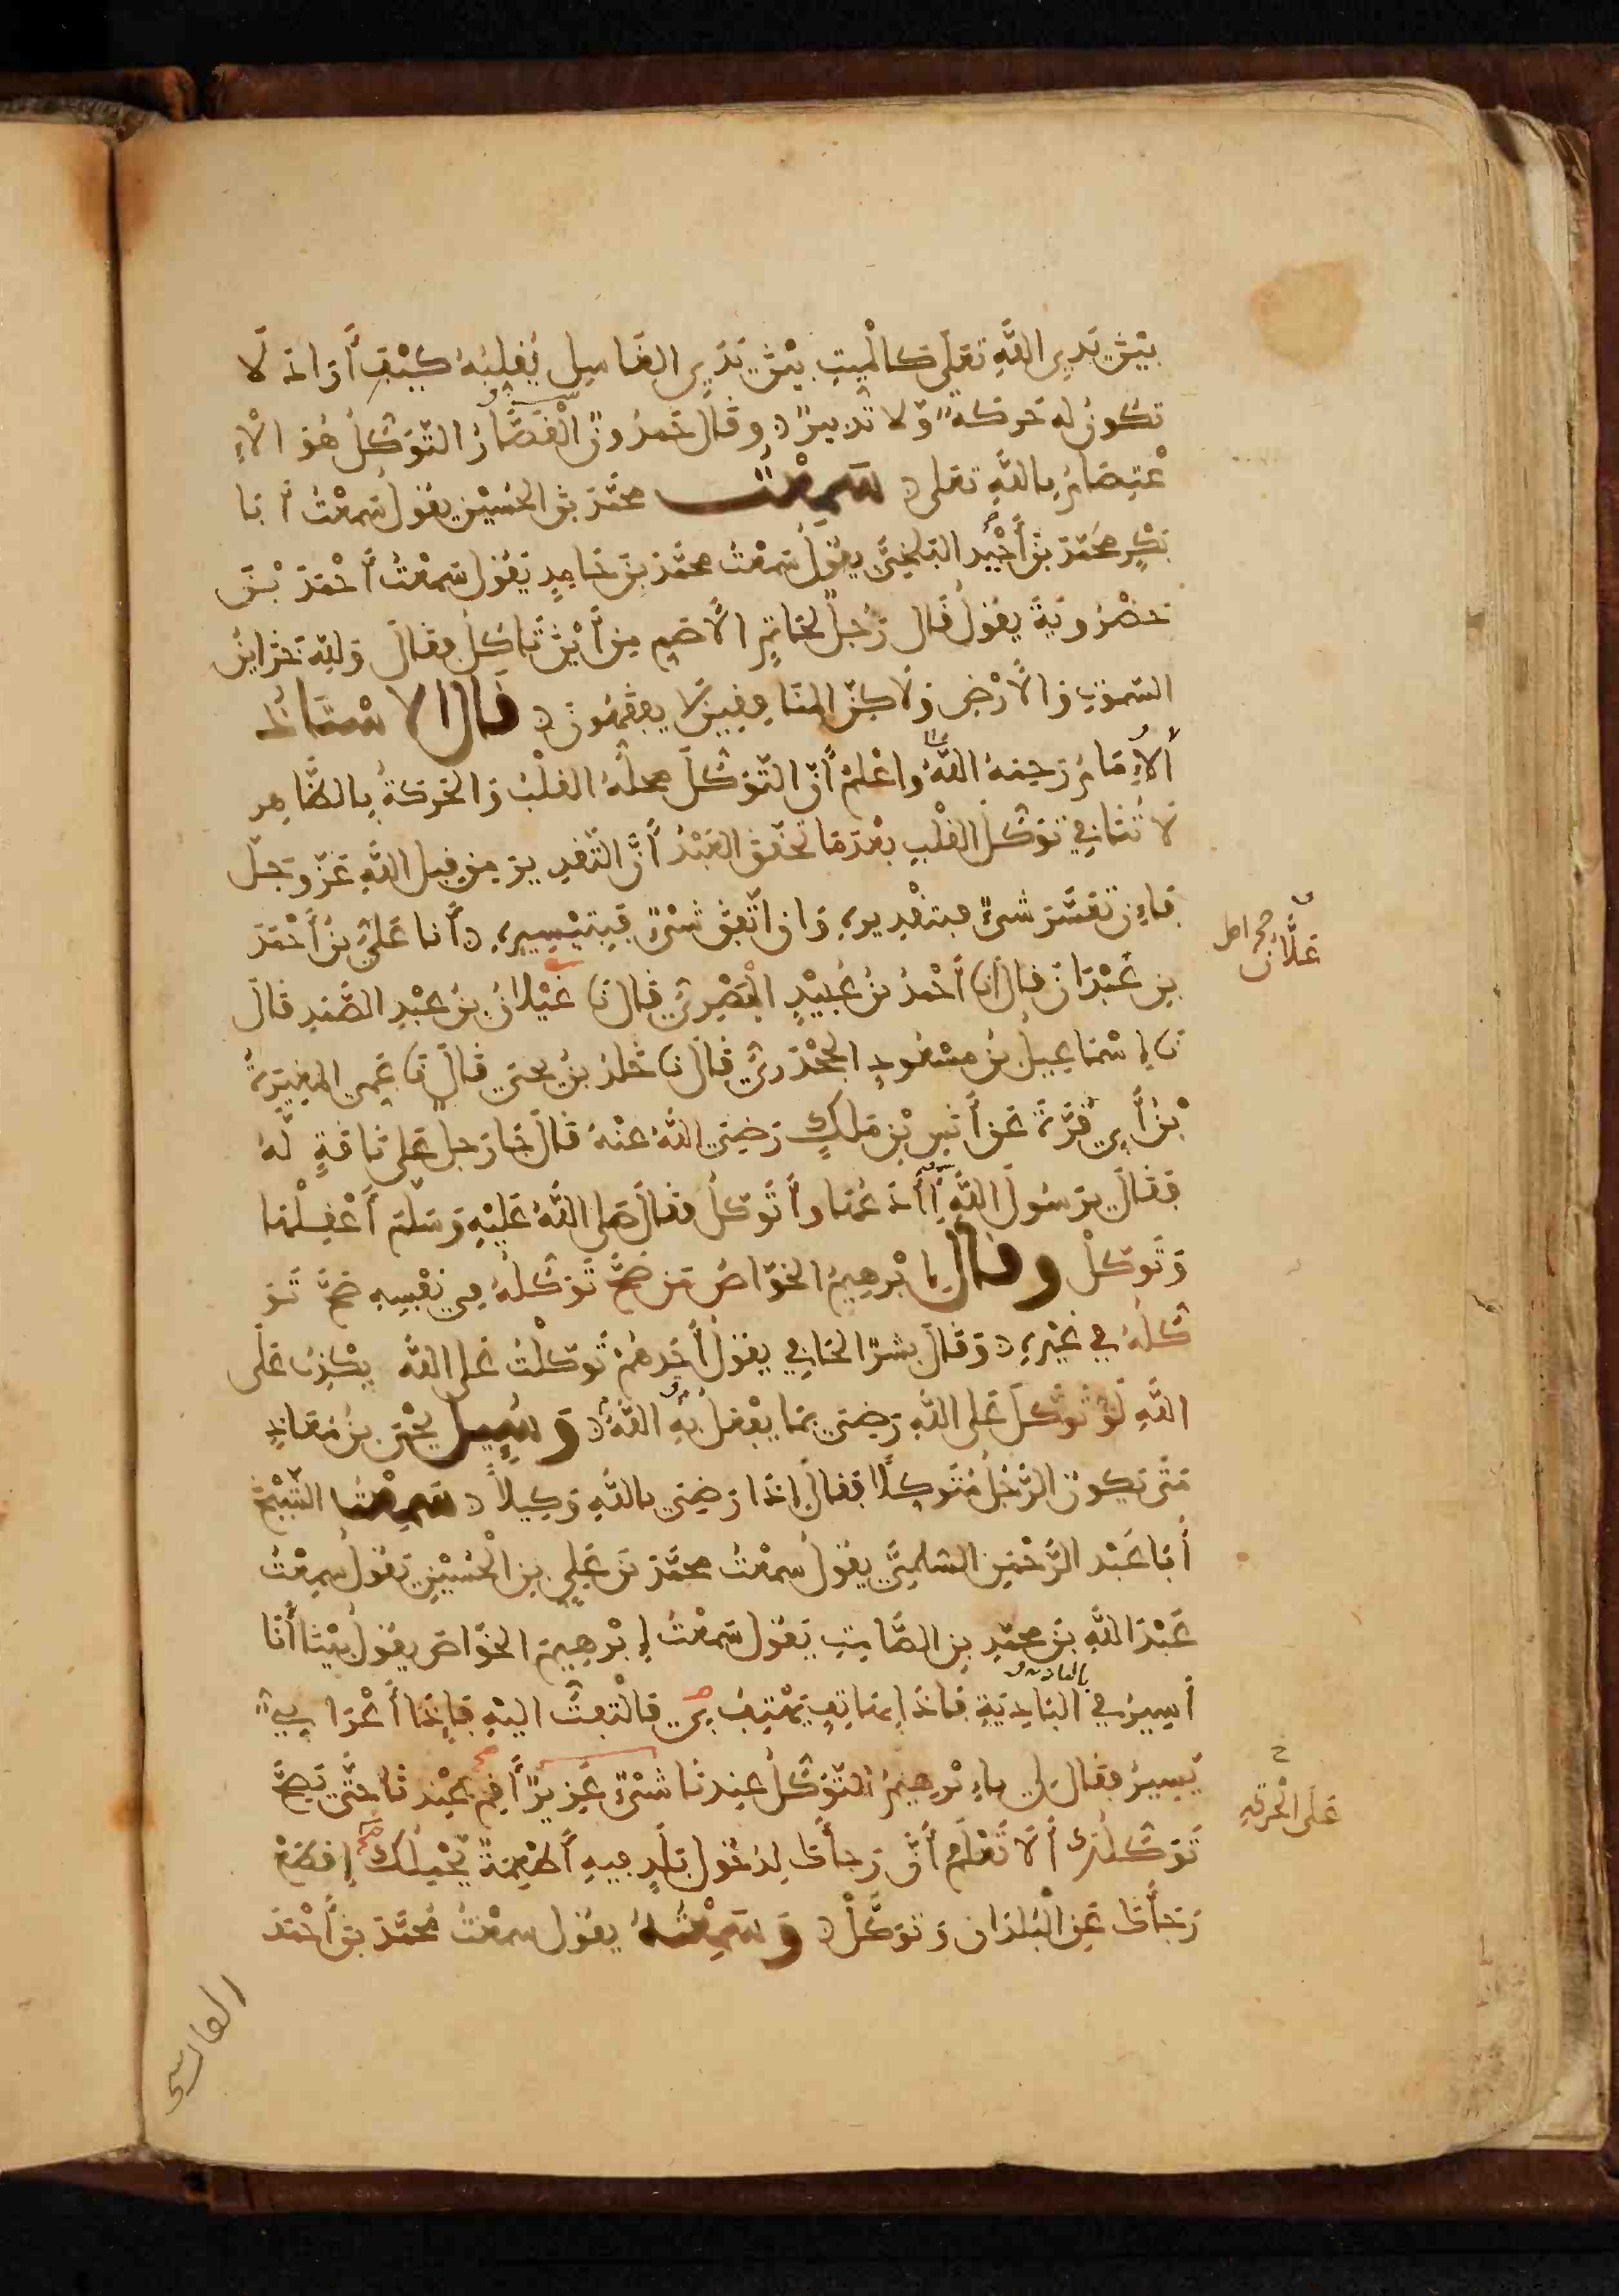 بَيْنَ يَدَيِ اللَّهِ تعلى كَالْمَيِّتِ بَيْنَ يَدَيِ الغَاسِلِ يُقَلِّبُهُ كَيْفَ أَرَادَ لَا
تكونُ له حَركةٌ وَلا تدبيرٌ وقَالَ حَمْدُونُ الْقَصَّارُ التَّوَكُّلُ هُوَ الْاِ
عْتِصَامُ بِاللَّهِ تعلى سَمِعْتُ محمَّدَ بنَ الحُسَيْنِ يقُولُ سَمِعْتُ أَبَا
بَكْرٍ محمَّدَ بنَ أَحْيَدَ البَلْخِيَّ يقُولُ سَمِعْتُ محمَّدَ بنَ حَامِدٍ يَقُولُ سَمِعْتُ أَحْمَدَ بْنَ
خَضْرُويَةَ يقُولُ قَالَ رَجُلٌ لحَاتِمٍ الْأَصَمِّ مِنْ أَيْنَ تَاكُلُ فقَالَ وَلِلَّهِ خَزَائِنُ
السَّمَوَاتِ وَالْأَرْضِ وَلَاكِنَّ المُنَافِقِينَ لَا يَفْقَهُونَ قَالَ الاسْتَاذُ
الْإِمَامُ رَحِمَهُ اللَّهُ واعْلَمْ أَنَّ التَّوَكُّلَ محلُّهُ القَلْبُ وَالحَرَكةُ بِالظَّاهِرِ
لَا تُنَافِي تَوَكُّلَ القَلْبِ بَعْدَمَا تَحَقَّقَ العَبْدُ أَنَّ التَّقْدِيرَ مِن قِبَلِ اللَّهِ عَزَّ وَجَلَّ
فَإِن تَعَسَّرَ شَيْءٌ فبتقْدِيرِهِ وَانِ اتَّفَقَ شَيْءٌ فَبِتَيْسِيرِهِ أَنَا عَلِيُّ بنُ أَحْمَدَ
بنِ عَبْدَانَ قَالَ أَنَا أَحْمَدُ بنُ عُبَيْدٍ الْبَصْرِيُّ قَالَ نَا غَيْلَانُ بنُ عَبْدِ الصَّمَدِ قَالَ
نَا إِسْمَاعِيلُ بنُ مَسْعُودٍ الجَحْدَرِيُّ قَالَ نَا خَالِدُ بنُ يحيَى قَالَ نَا عَمِّي المُغِيرَةُ
بْنُ أَبِي قُرَّةَ عَنْ أَنَسِ بْنِ مَلكٍ رَضِيَ اللَّهُ عَنْهُ قَالَ جَا رَجلٌ عَلَى نَاقَةٍ لَهُ
فَقَالَ يَرَسُولَ اللَّهِ أَأَدَعُهَا وأَتَوَكَّلُ فقَالَ صَلى اللَّهُ عَلَيْهِ وَسَلَّم أَعْقِلْهَا
وَتَوَكَّلْ وقَالَ إِبْرهِيمُ الخَوَّاصُ مَن صَحَّ تَوَكُّلهُ فِي نَفْسِهِ صَحَّ تَوَ
كُّلُهُ فِي غَيْرِهِ وَقَالَ بِشْرٌ الحَافِي يقُولُ أَحَدُهُمْ تَوَكَّلْتُ عَلَى اللَّه يَكْذِبُ عَلَى
اللَّهِ لَوْ تَوَكَّلَ عَلَى اللَّهِ رَضِيَ بمَا يفْعَلُ بِهِ اللَّهُ وَسُئِيلَ يَحْيَى بنُ مُعَاذٍ
مَتَى يَكُونُ الرَّجُلُ مُتَوَكِّلًا فقَالَ إِذَا رَضِيَ بِاللَّهِ وَكِيلاً سَمِعْتُ الشَّيْخَ
أَبَا عَبْدِ الرَّحْمَنِ السُّلَمِيَّ يقُولُ سَمِعْتُ محمَّدَ بْنَ عَلِي بنِ الْحُسَيْنِ يَقُولُ سَمِعْتُ
عَبْدَ اللَّهِ بنَ محمَّدِ بنِ الصَّامِتِ يَقُولُ سَمِعْتُ إِبْرهِيمَ الخَوَّاصَ يقُولُ بَيْنَا أَنَا
أَسِيرُ فِي البَادِيَةِ فَإِذَا بِهَاتِفٍ يَهْتِفُ بِي فَالْتَفَتُّ الَيْهِ فَإِذَا أَعْرَابِيٌّ
يَسِيرُ فقَالَ لِي يَا إِبْرهِيمُ التَّوَكُّلُ عِندَنَا شَيْءٌ عَزِيزٌ أَقِمْ عِنْدَنَا حتَّى يَصِحَّ
تَوَكُّلُكَ أَلَا تَعْلَمُ أَنَّ رَجَاءَكَ لِدُخُولِ بَلَدٍ فِيهِ أَطْعِمَةٌ تَحْمِلُكَ إِقْطَعْ
رَجَاءَكَ عَنِ الْبُلْدَانِ وَتَوَكَّلْ وَسَمِعْتُهُ يقُولُ سَمِعْتُ مُحَمَّدَ بنَ أَحْمَدَ
عَلَّانُ
الفارسى